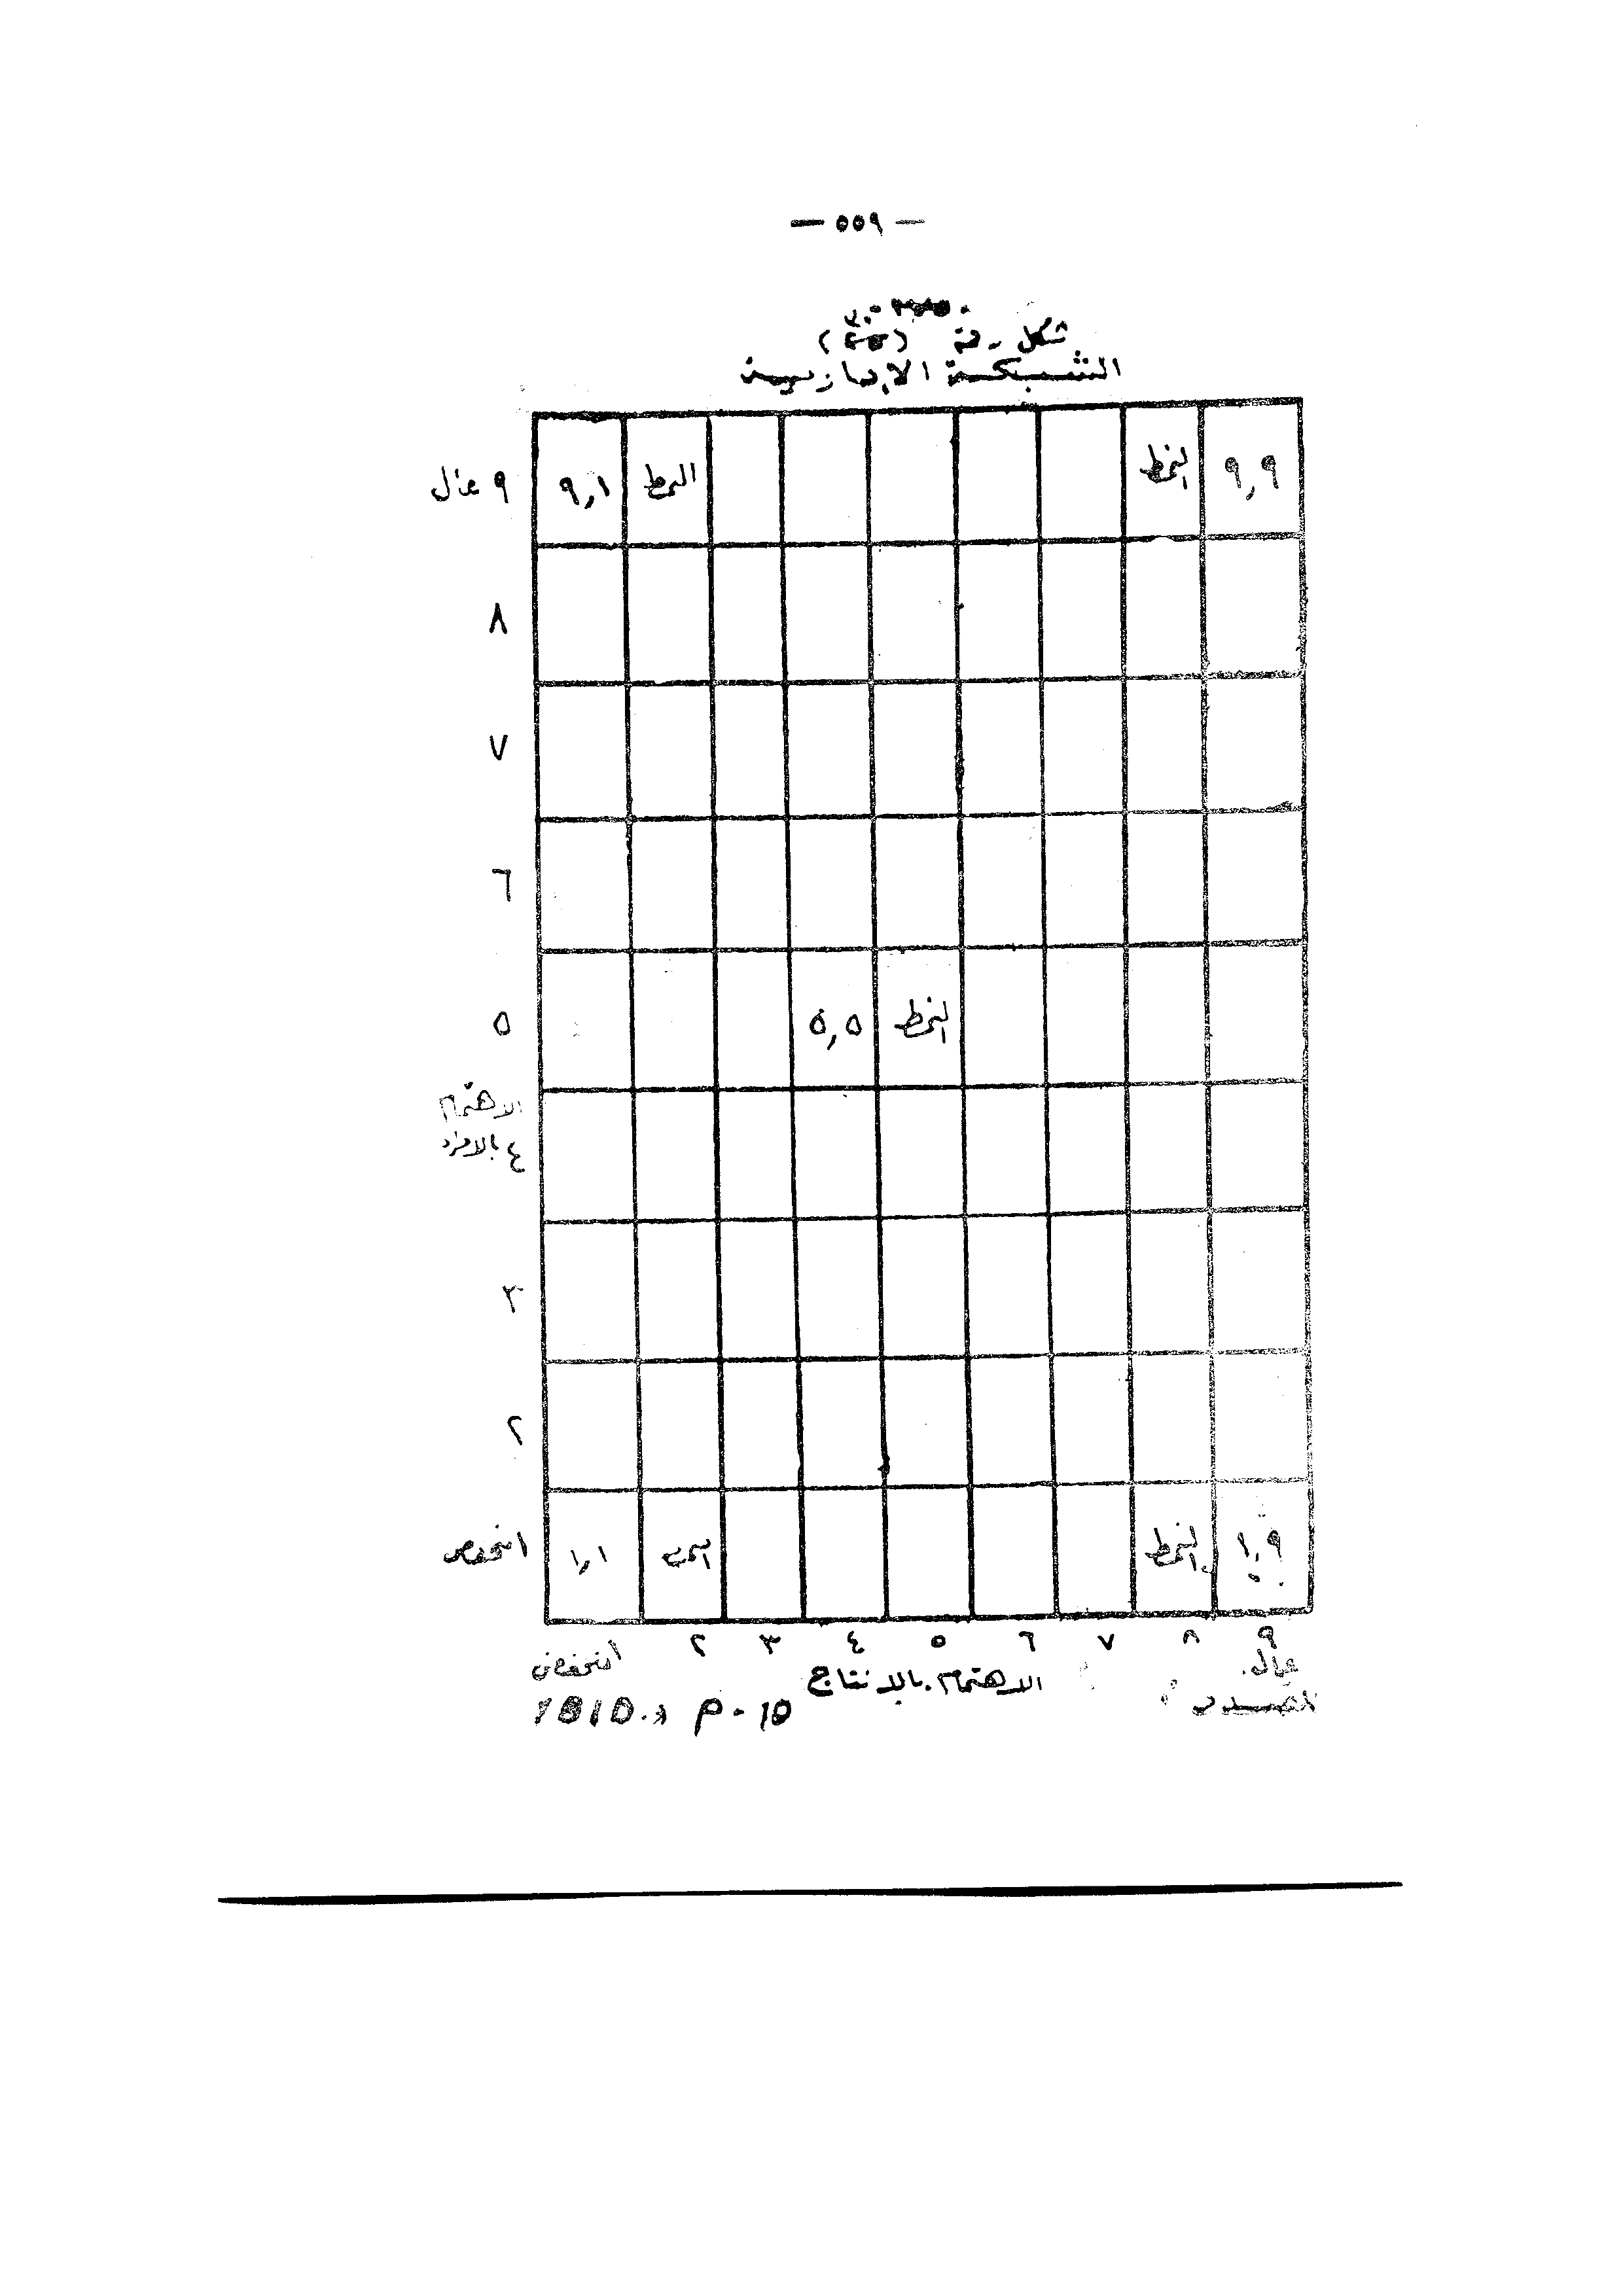 — ٥٥٩ —
شكل رقم
الشبكة الإدارية
٩ عال ٩,١ النمط النمط ٩,٩
٨
٧
٦
٥ ٥,٥ النمط
الاهتمام
٤ بالافراد
٣
٢
١ منخفض ١,١ النمط النمط ١,٩
١ منخفض ٢ ٣ ٤ ٥ ٦ ٧ ٨ ٩
عال
الاهتمام بالانتاج
المصدر :